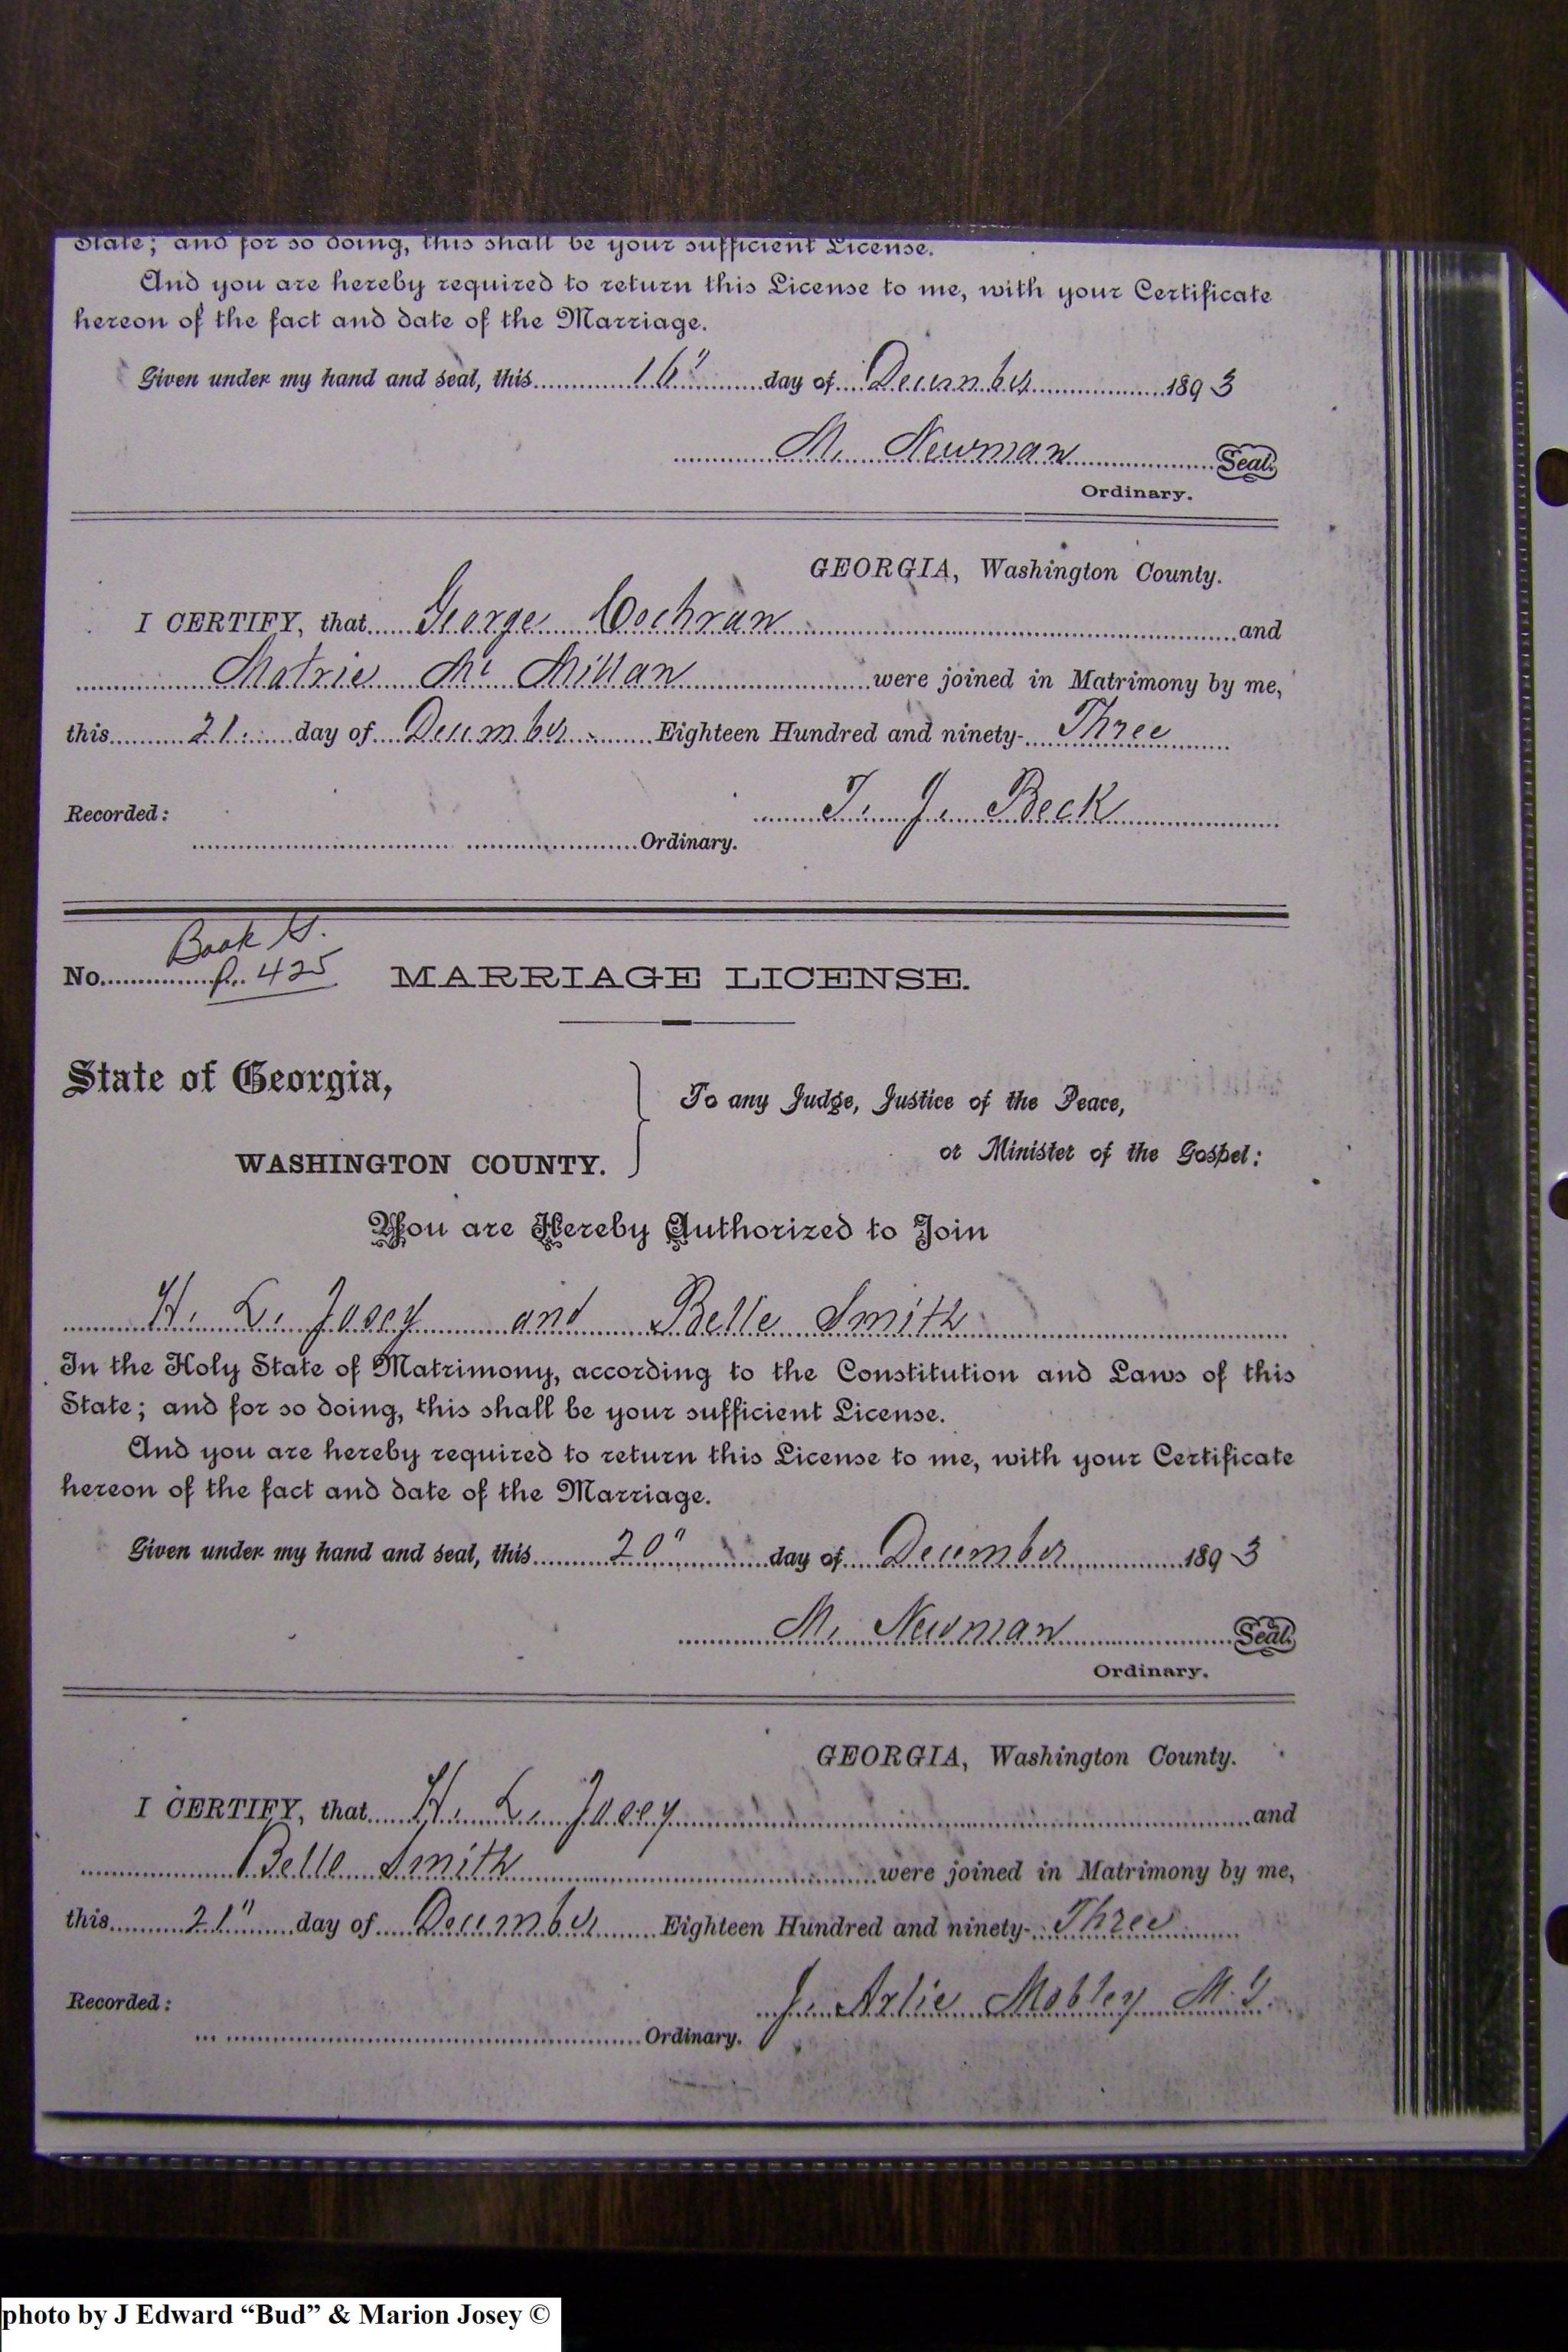 State; and for so doing, this shall be your sufficient License.
And you are hereby required to return this License to me, with your Certificate
hereon of the fact and date of the Marriage.
Given under my hand and seal, this 16" day of December 1893
M. Newman Seal.
Ordinary.
GEORGIA, Washington County.
I CERTIFY, that George Cochran and
Matrie Mc Millan were joined in Matrimony by me,
this 21. day of December Eighteen Hundred and ninety- Three
T. J. Beck
Recorded:
Ordinary.
Book G.
No. p. 425 MARRIAGE LICENSE.
State of Georgia,
WASHINGTON COUNTY.
To any Judge, Justice of the Peace,
or Minister of the Gospel:
You are Hereby Authorized to Join
H. L. Josey and Belle Smith
In the Holy State of Matrimony, according to the Constitution and Laws of this
State; and for so doing, this shall be your sufficient License.
And you are hereby required to return this License to me, with your Certificate
hereon of the fact and date of the Marriage.
Given under my hand and seal, this 20" day of December 1893
M. Newman Seal.
Ordinary.
GEORGIA, Washington County.
I CERTIFY, that H. L. Josey and
Belle Smith were joined in Matrimony by me,
this 21" day of December Eighteen Hundred and ninety- Three
J. Arlie Mobley M.G.
Recorded:
Ordinary.
photo by J Edward “Bud” & Marion Josey ©